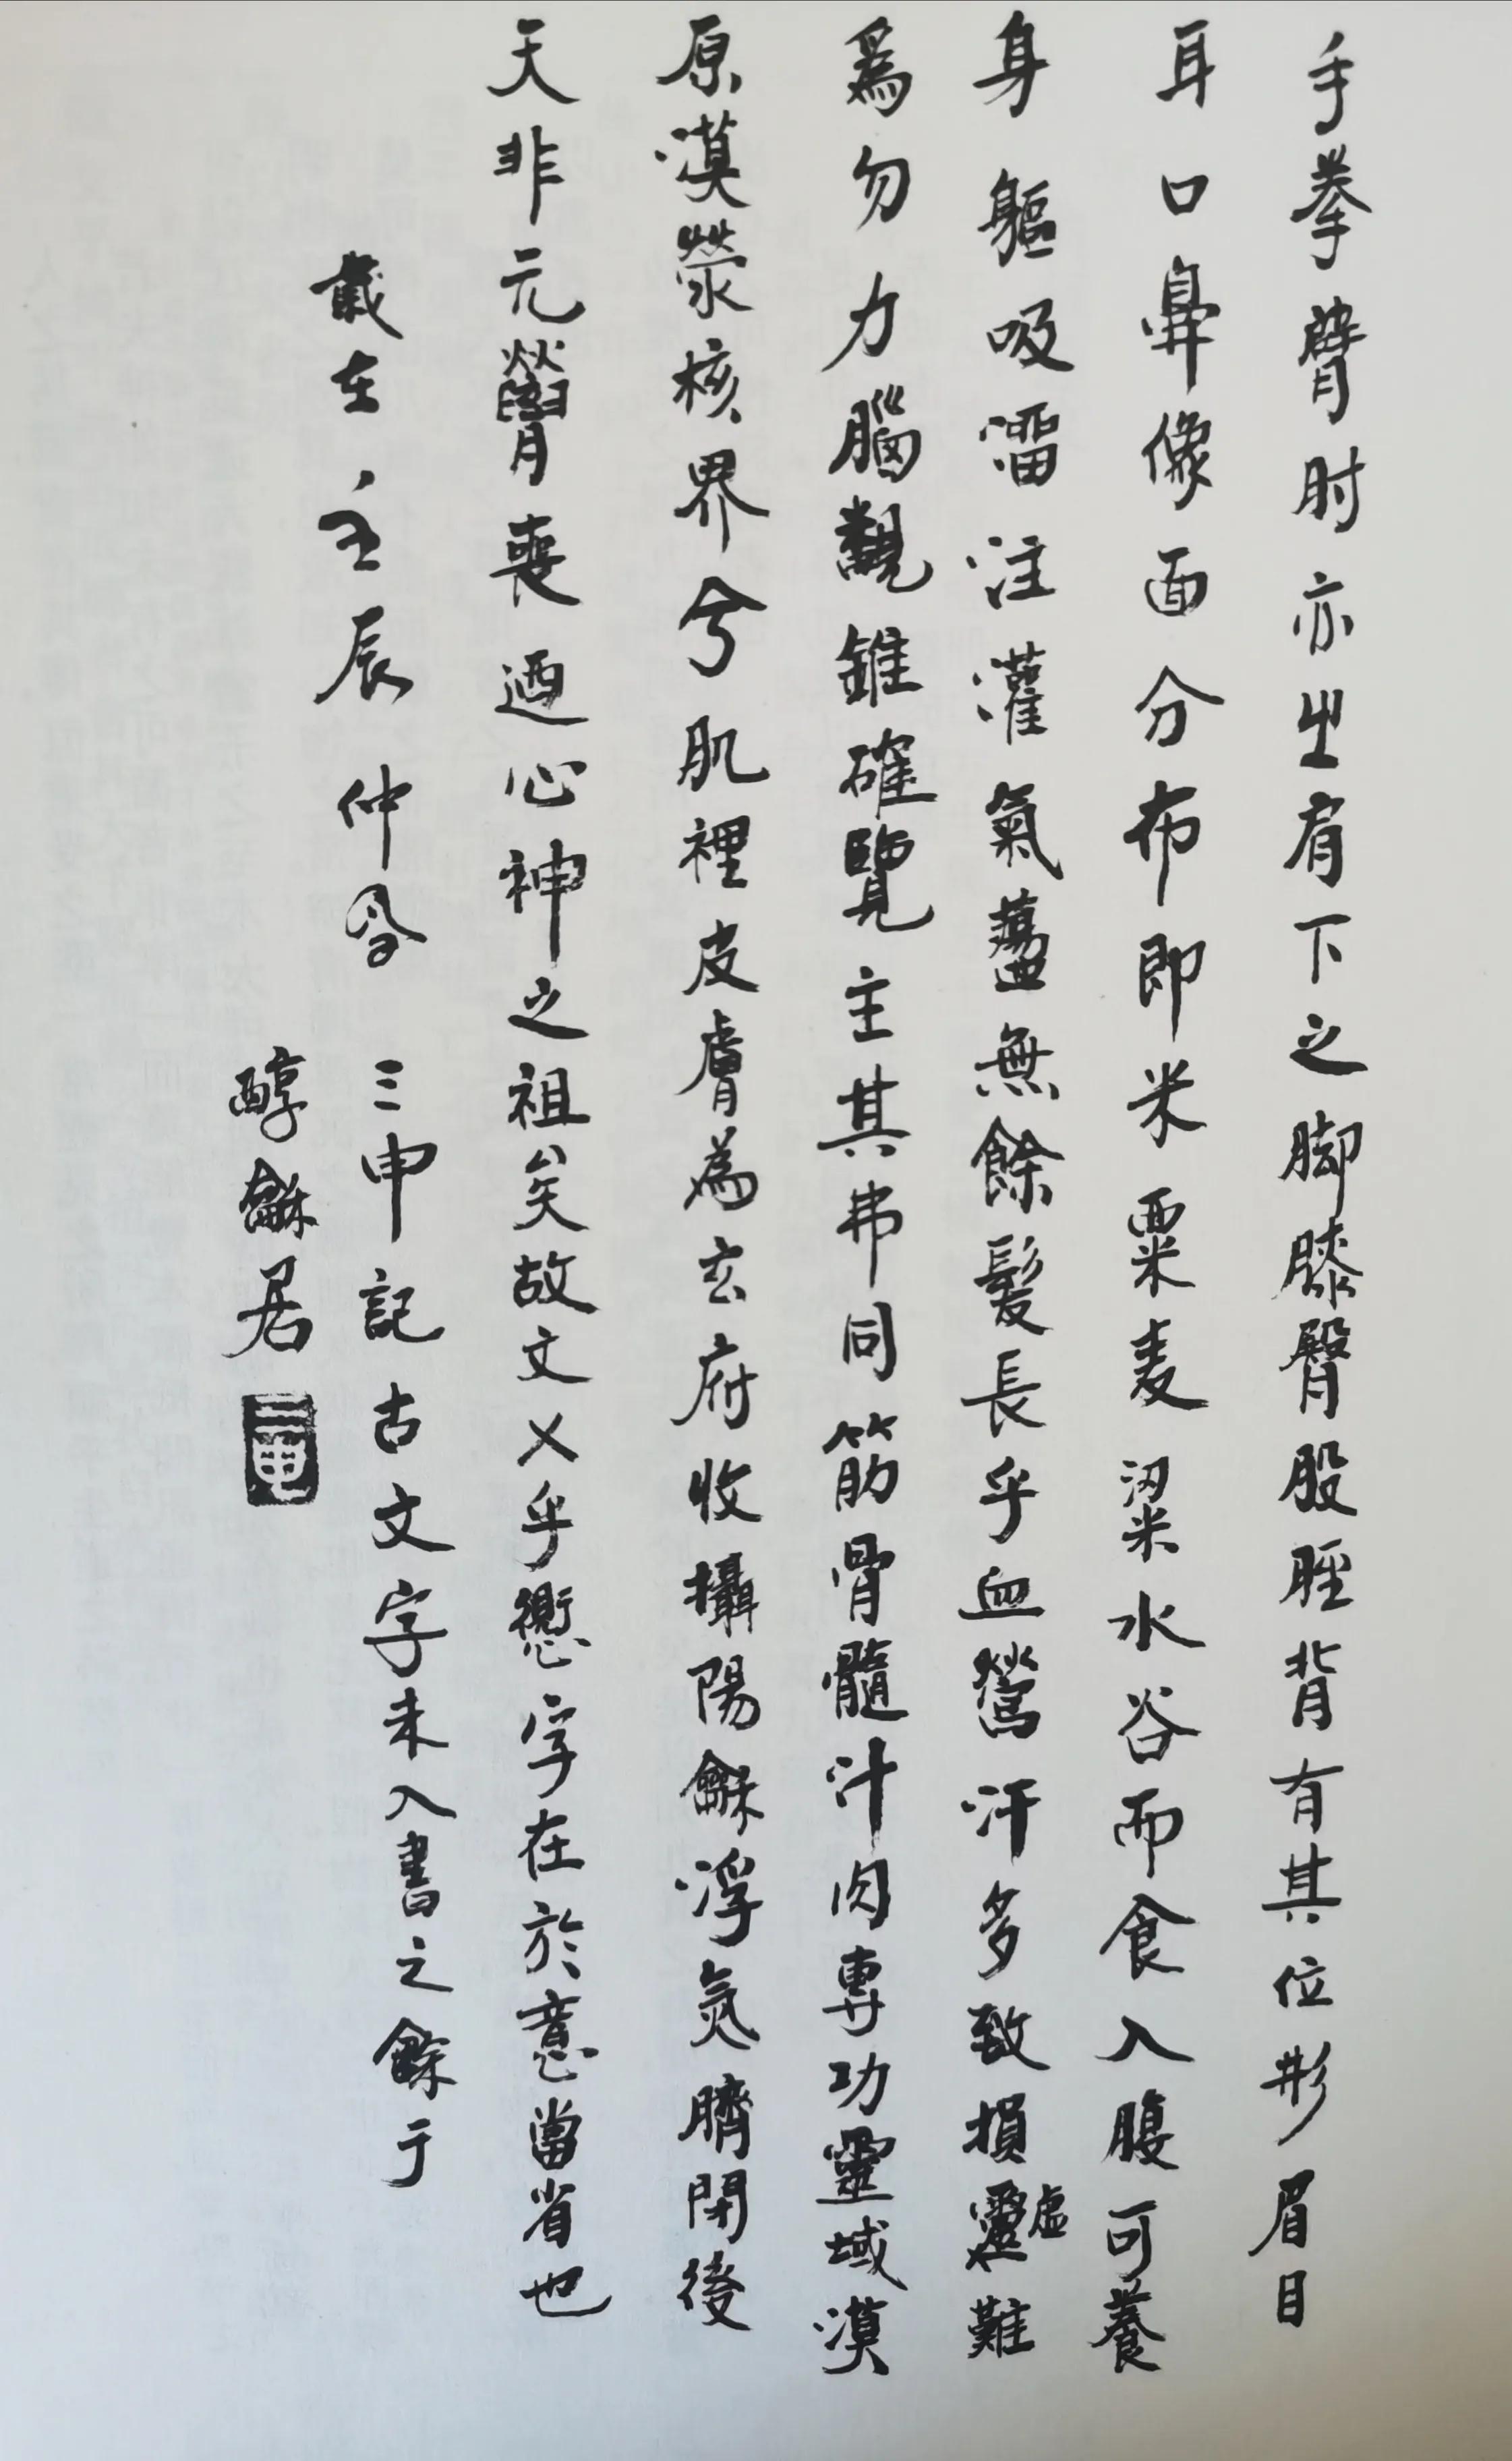 手拳臂肘亦出肩下之脚膝臀股脛背有其位形眉目
耳口鼻像面分布即米粟麦粱水谷而食入腹可養
身軀吸溜注灌氣盪無餘髮長乎血鶯汗多致損靈虛難
爲勿力腦觀錐確覽主其弗同筋骨髓汁肉專功靈域漠
原漠滎核界兮肌裡皮膚為玄府收攝陽龢浮氣臍閉後
天非元喪迺心神之祖矣故文乂乎字在於意當省也
歲在壬辰仲
三申記古文字未入書之餘于
醇龢居
三申